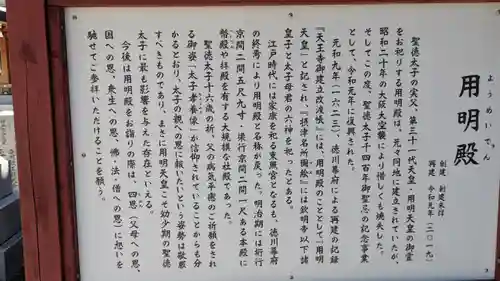 ようめいでん
用明殿
創建　創建未詳
再建　令和元年（二〇一九）
聖徳太子の実父、第三十一代天皇・用明天皇の御霊
をお祀りする用明殿は、元々同地に建立されていたが、
昭和二十年の大阪大空襲により惜しくも焼失した。
そしてこの度、聖徳太子千四百年御聖忌の記念事業
として、令和元年に復興された。
元和九年（一六二三）、徳川幕府による再建の記録
『天王寺御建立改渡帳』には、用明殿のこととして「用明
天皇」と記され、『摂津名所圖絵』には欽明帝以下諸
皇子と太子母君の六神を祀ったとある。
江戸時代には家康を祀る東照宮となるも、徳川幕府
の終焉により用明殿と名称が戻った。明治期には桁行
京間二間五尺九寸、梁行京間二間一尺ある本殿に
幣殿や拝殿を有する大規模な社殿であった。
聖徳太子十六歳の折、父の病気平癒のご祈願をされ
る御姿「太子孝養像」が信仰されていることからも分
かるとおり、太子の親への恩に報いたいという姿勢は敬慕
すべきものであり、まさに用明天皇こそ幼少期の聖徳
太子に最も影響を与えた存在といえる。
今後は用明殿をお詣りの際は、四恩（父母への恩、
国への恩、衆生への恩、佛・法・僧への恩）に想いを
馳せてご参拝いただけることを願う。